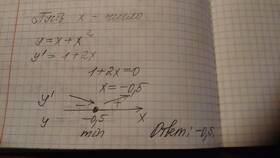 Пусть x - число
y = x + x²
y' = 1 + 2x
1 + 2x = 0
x = -0,5
y' - +
y -0,5 x
min Ответ: -0,5